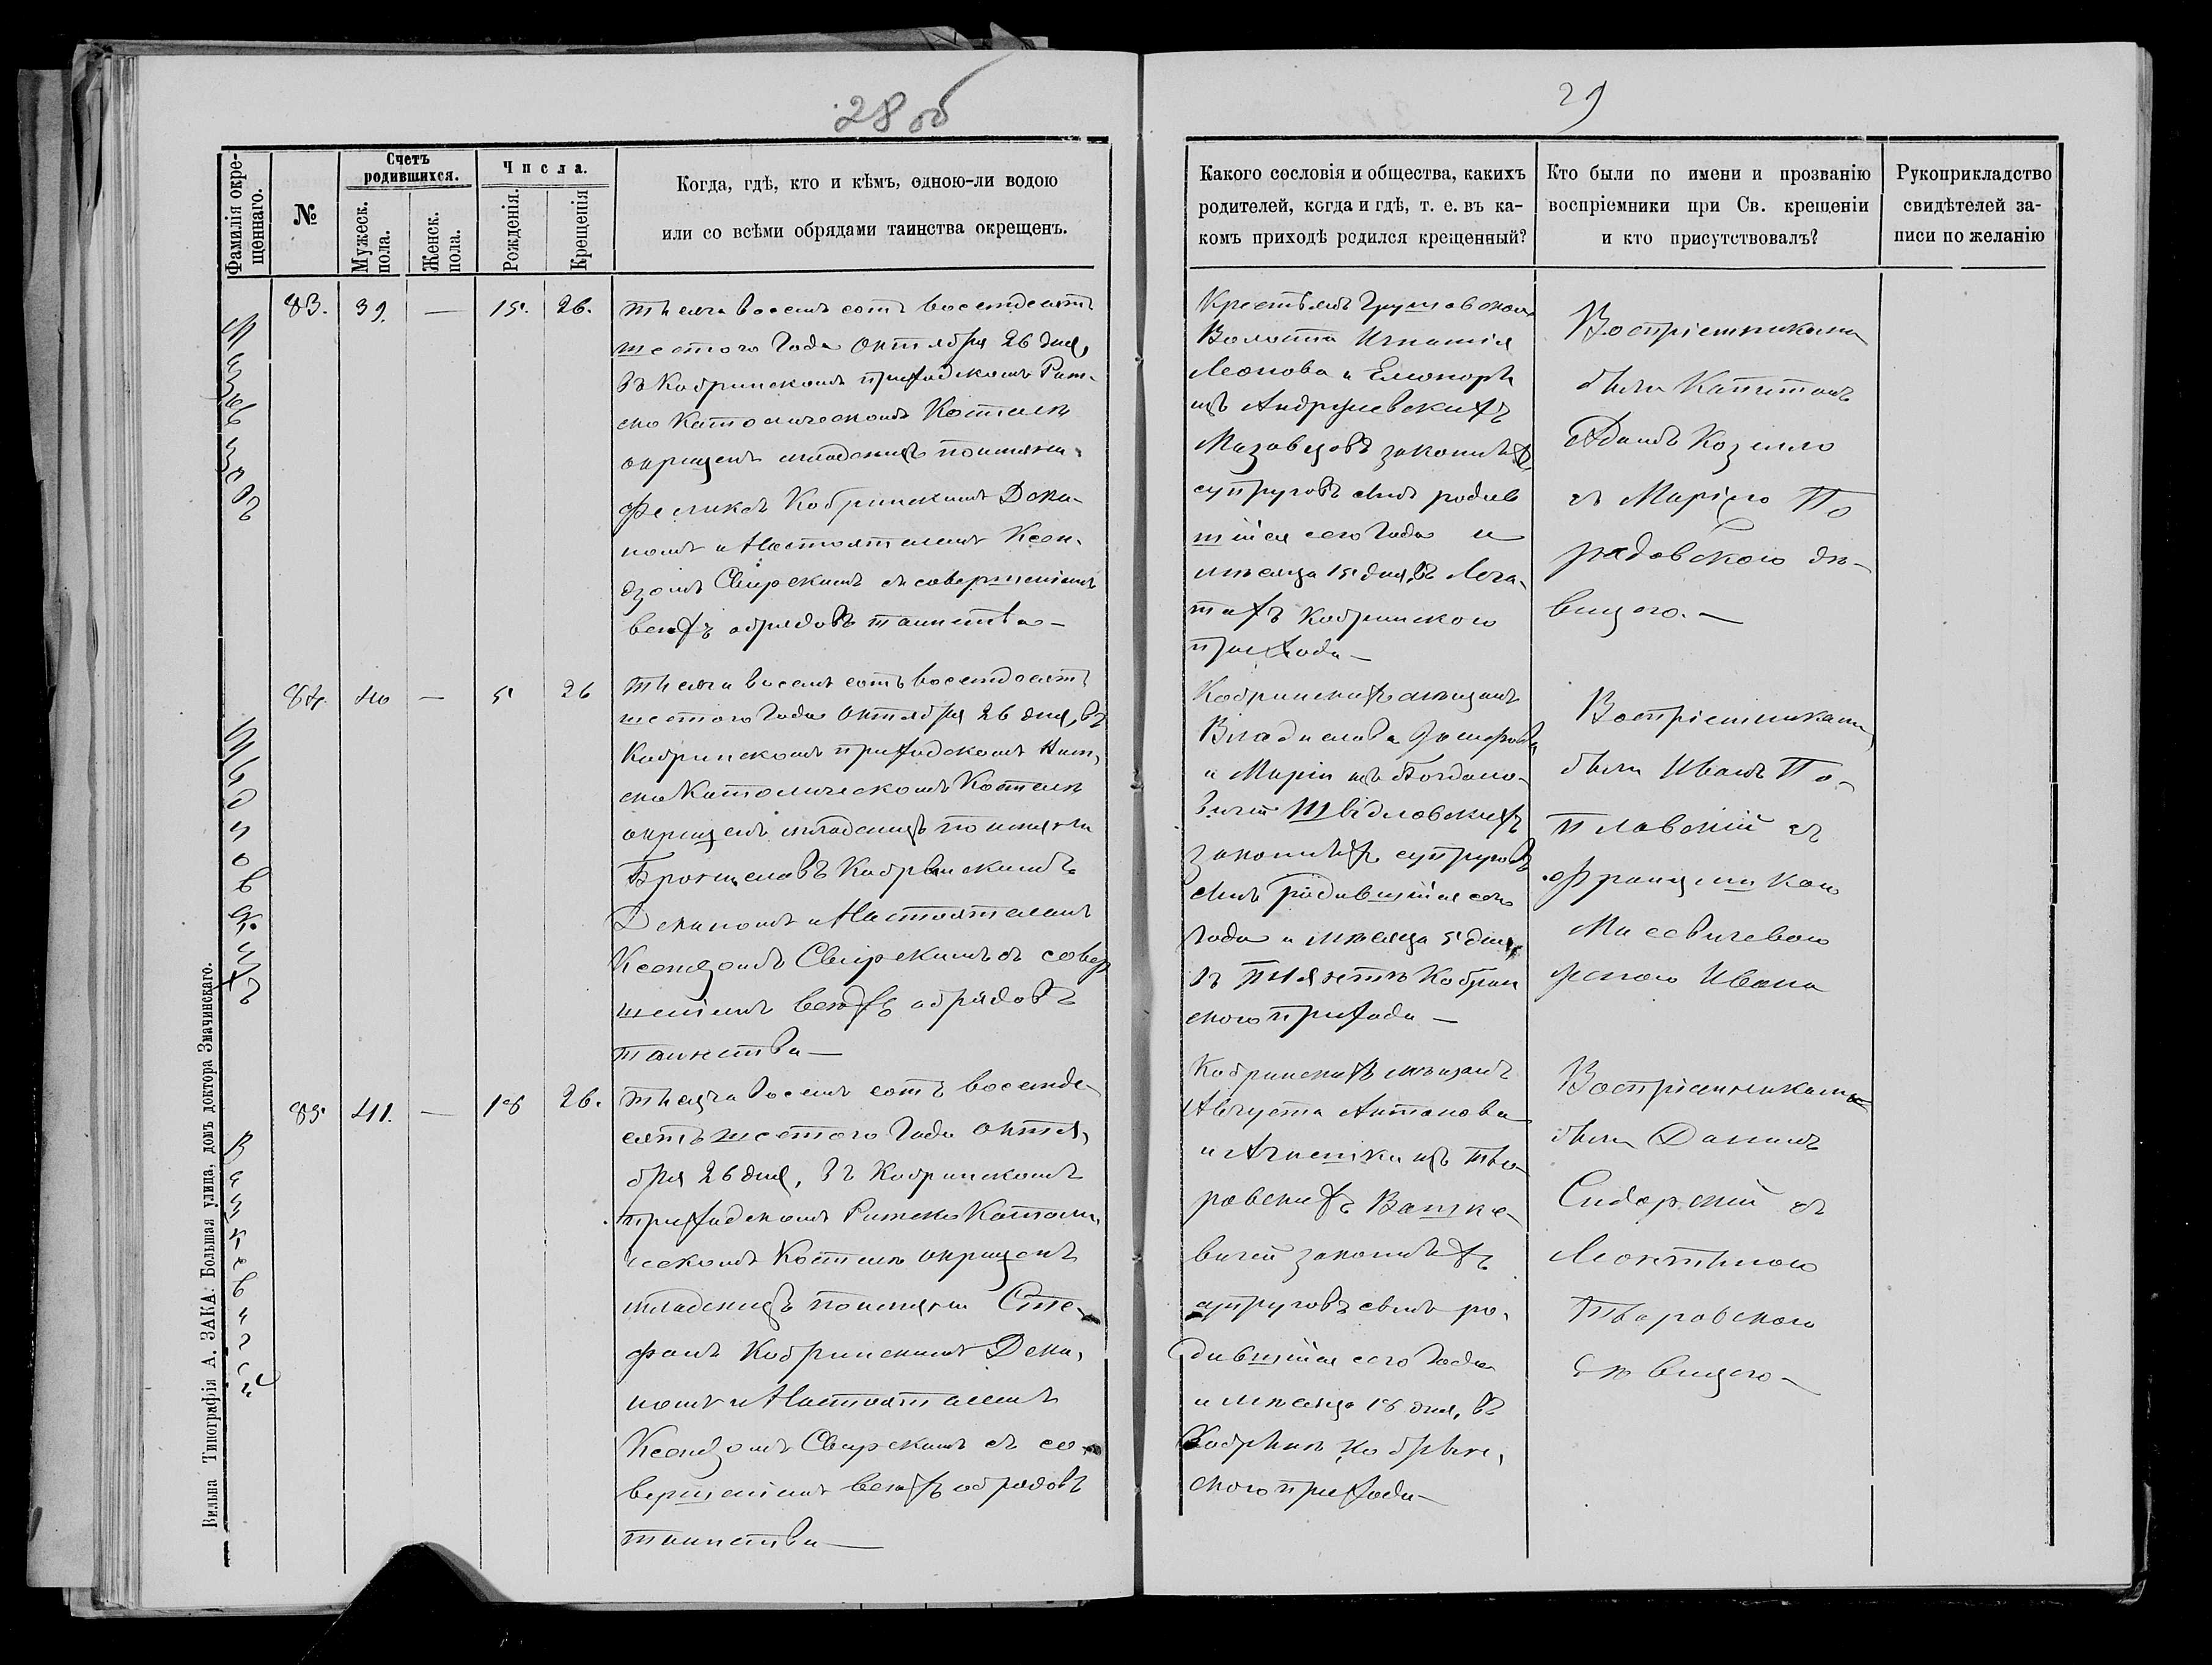 28 об
29
Фамилія окре-
щеннаго.
№
Счетъ
родившихся.
Мужеск.
пола.
Женск.
пола.
Числа.
Рожденія.
Крещенія
Когда, гдѣ, кто и кѣмъ, одною-ли водою
или со всѣми обрядами таинства окрещенъ.
Какого сословія и общества, какихъ
родителей, когда и гдѣ, т. е. въ ка-
комъ приходѣ родился крещенный?
Кто были по имени и прозванію
воспріемники при Св. крещеніи
и кто присутствовалъ?
Рукоприкладство
свидѣтелей за-
писи по желанію
83. 39. — 15. 26.
тысяча восемь сотъ восемдесятъ
шестого Года Октября 26 дня,
въ Кобринскомъ приходскомъ Рим-
ско Католическомъ Костелѣ
окрещенъ младенецъ по имени
Феликсъ Кобринскимъ Дека-
номъ и Настоятелемъ Ксен-
дзомъ Свирскимъ съ совершеніемъ
всѣхъ обрядовъ таинства —
Крестьянъ
Волости Игнатія
Леонова и Елеоноры
изъ Андржиевскихъ
законныхъ
супруговъ сынъ родив
шійся сего Года и
мѣсяца 15 дня, въ
Кобринского
прихода —
Воспріемниками
были Капитанъ
Адамъ Козелло
съ Маріею По
радовского дѣ-
вицею. —
84. 40 — 5 26
тысяча восемь сотъ восемдесятъ
шестого Года Октября 26 дня, въ
Кобринскомъ приходскомъ Рим-
ско Католическомъ Костелѣ
окрещенъ младенецъ по имени
Брониславъ Кобринскимъ
Деканомъ и Настоятелемъ
Ксендзомъ Свирскимъ съ совер
шеніемъ всѣхъ обрядовъ
таинства —
Кобринскихъ мѣщанъ
Владислава
и Маріи изъ Богдано-
вичей Швидловскихъ
законныхъ супруговъ
сынъ родившійся сего
Года и мѣсяца 5 дня,
въ Кобрин
ского прихода —
Воспріемниками
были Иванъ По-
плавскій съ
Францишкою
Массевичевою
женою Ивана
85 41. — 18 26.
тысяча восемь сотъ восемде-
сятъ шестого Года Октя-
бря 26 дня, въ Кобринскомъ
приходскомъ Римско Католи-
ческомъ Костелѣ окрещенъ
младенецъ по имени Сте-
фанъ Кобринскимъ Дека-
номъ и Настоятелемъ
Ксендзомъ Свирскимъ съ со-
вершеніемъ всѣхъ обрядовъ
таинства —
Кобринскихъ мѣщанъ
Августа Антонова
и Агнешки изъ Тво-
ровскихъ Вашке-
вичей законныхъ
супруговъ сынъ ро-
дившійся сего Года
и мѣсяца 18 дня, въ
Кобринѣ Кобрин-
ского прихода —
Воспріемниками
были Даніилъ
Сидорскій съ
Леонтиною
Творовского
дѣвицею —
Вашкевичей
Вильна Типографія А. ЗАКА: Большая улица, домъ доктора Змачинскаго.